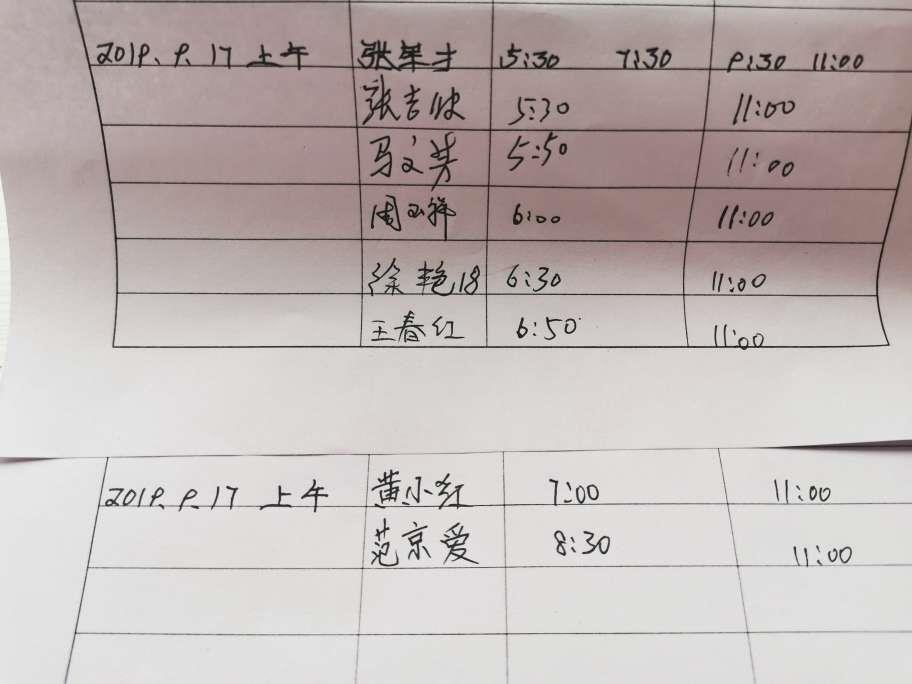 2019.9.17 上午 张荣才 5:30 7:30 9:30 11:00
张吉付 5:30 11:00
马文芳 5:50 11:00
周玉祥 6:00 11:00
徐艳 6:30 11:00
王春红 6:50 11:00
2019.9.17 上午 黄小红 7:00 11:00
范京爱 8:30 11:00